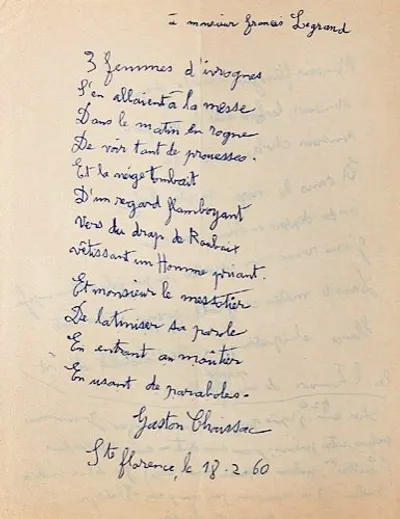 à monsieur Francis Legrand
3 femmes d'ivrognes
S'en allaient à la messe
Dans le matin en rogne
De voir tant de prouesses.
Et la neige tombait
D'un regard flamboyant
Vers du drap de Roubaix
vêtissant un Homme priant.
Et monsieur le messetier
De latiniser sa parole
En entrant au moûtier
En usant de paraboles.
Gaston Chaissac
Ste florence, le 18.2.60